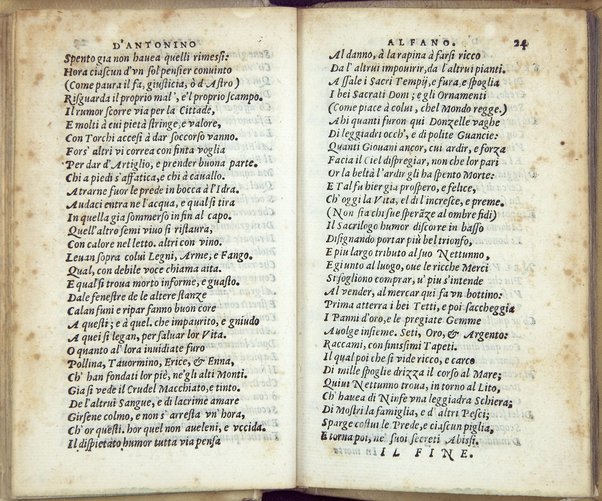 D'ANTONINO
Spento gia non hauea quelli rimessi:
Hora ciascun d'vn sol pensier conuinto
(Come paura il fa, giusticia, ò d'Astro)
Risguarda il proprio mal', e'l proprio scampo.
Il rumor scorre via per la Cittade,
E molti à cui pietà stringe, e valore,
Con Torchi accesi à dar soccorso vanno.
Fors' altri vi correa con finta voglia
Per dar d'Artiglio, e prender buona parte.
Chi a piedi s'affatica, e chi à cauallo.
Atrarne fuor le prede in bocca à l'Idra.
Audaci entra ne l'acqua, e qual si tira
In quella gia sommerso in fin al capo.
Quell'altro semi viuo si ristaura,
Con calore nel letto. altri con vino.
Leuan sopra colui Legni, Arme, e Fango.
Qual, con debile voce chiama aita.
E qual si troua morto informe, e guasto.
Dale fenestre de le altere stanze
Calan funi e ripar fanno buon core
A questi; e à quel. che impaurito, e gniudo
A quei si legan, per saluar lor Vita.
O quanto al'lora inuidiate furo
Pollina, Tauormino, Erice, & Enna,
Ch' han fondati lor piè, ne'gli alti Monti.
Gia si vede il Crudel Macchiato, e tinto.
De l'altrui Sangue, e di lacrime amare
Girsene colmo, e non s' arresta vn'hora,
Ch' or questi. hor quel non aueleni, e vccida.
Il dispietato humor tutta via pensa
ALFANO. 24
Al danno, à la rapina à farsi ricco
Da l'altrui impourir, da l'altrui pianti.
Assale i Sacri Tempij, e fura, e spoglia
I bei Sacrati Doni; e gli Ornamenti
(Come piace à colui, chel Mondo regge.)
Ahi quanti furon qui Donzelle vaghe
Di leggiadri occh', e di polite Guancie:
Quanti Giouani ancor, cui ardir, e forza
Facia il Ciel dispregiar, non che lor pari
Or la beltà l'ardir gli ha spento Morte:
E Tal fu hier gia prospero, e felice,
Ch' oggi la Vita, el dì increscie, e preme.
(Non sia chi sue sperāze al ombre fidi)
Il Sacrilogo humor discorre in basso
Disignando portar più bel trionfo,
E piu largo tributo al suo Nettunno,
E giunto al luogo, oue le ricche Merci
Si sogliono comprar, u' piu s'intende
Al vender, al mercar qui fa vn bottino:
Prima atterra i bei Tetti, e poi saccheggia
I Panni d'oro, e le pregiate Gemme
Auolge insieme. Seti, Oro, & Argento:
Raccami, con finissimi Tapeti.
Il qual poi che si vide ricco, e carco
Di mille spoglie drizza il corso al Mare;
Quiui Nettunno troua, in torno al Lito,
Ch' hauea di Ninfe vna leggiadra Schiera;
Di Mostri la famiglia, e d' altri Pesci;
Sparge costui le Prede, e ciascun piglia.
E torna poi, ne' suoi secreti Abissi.
IL FINE.